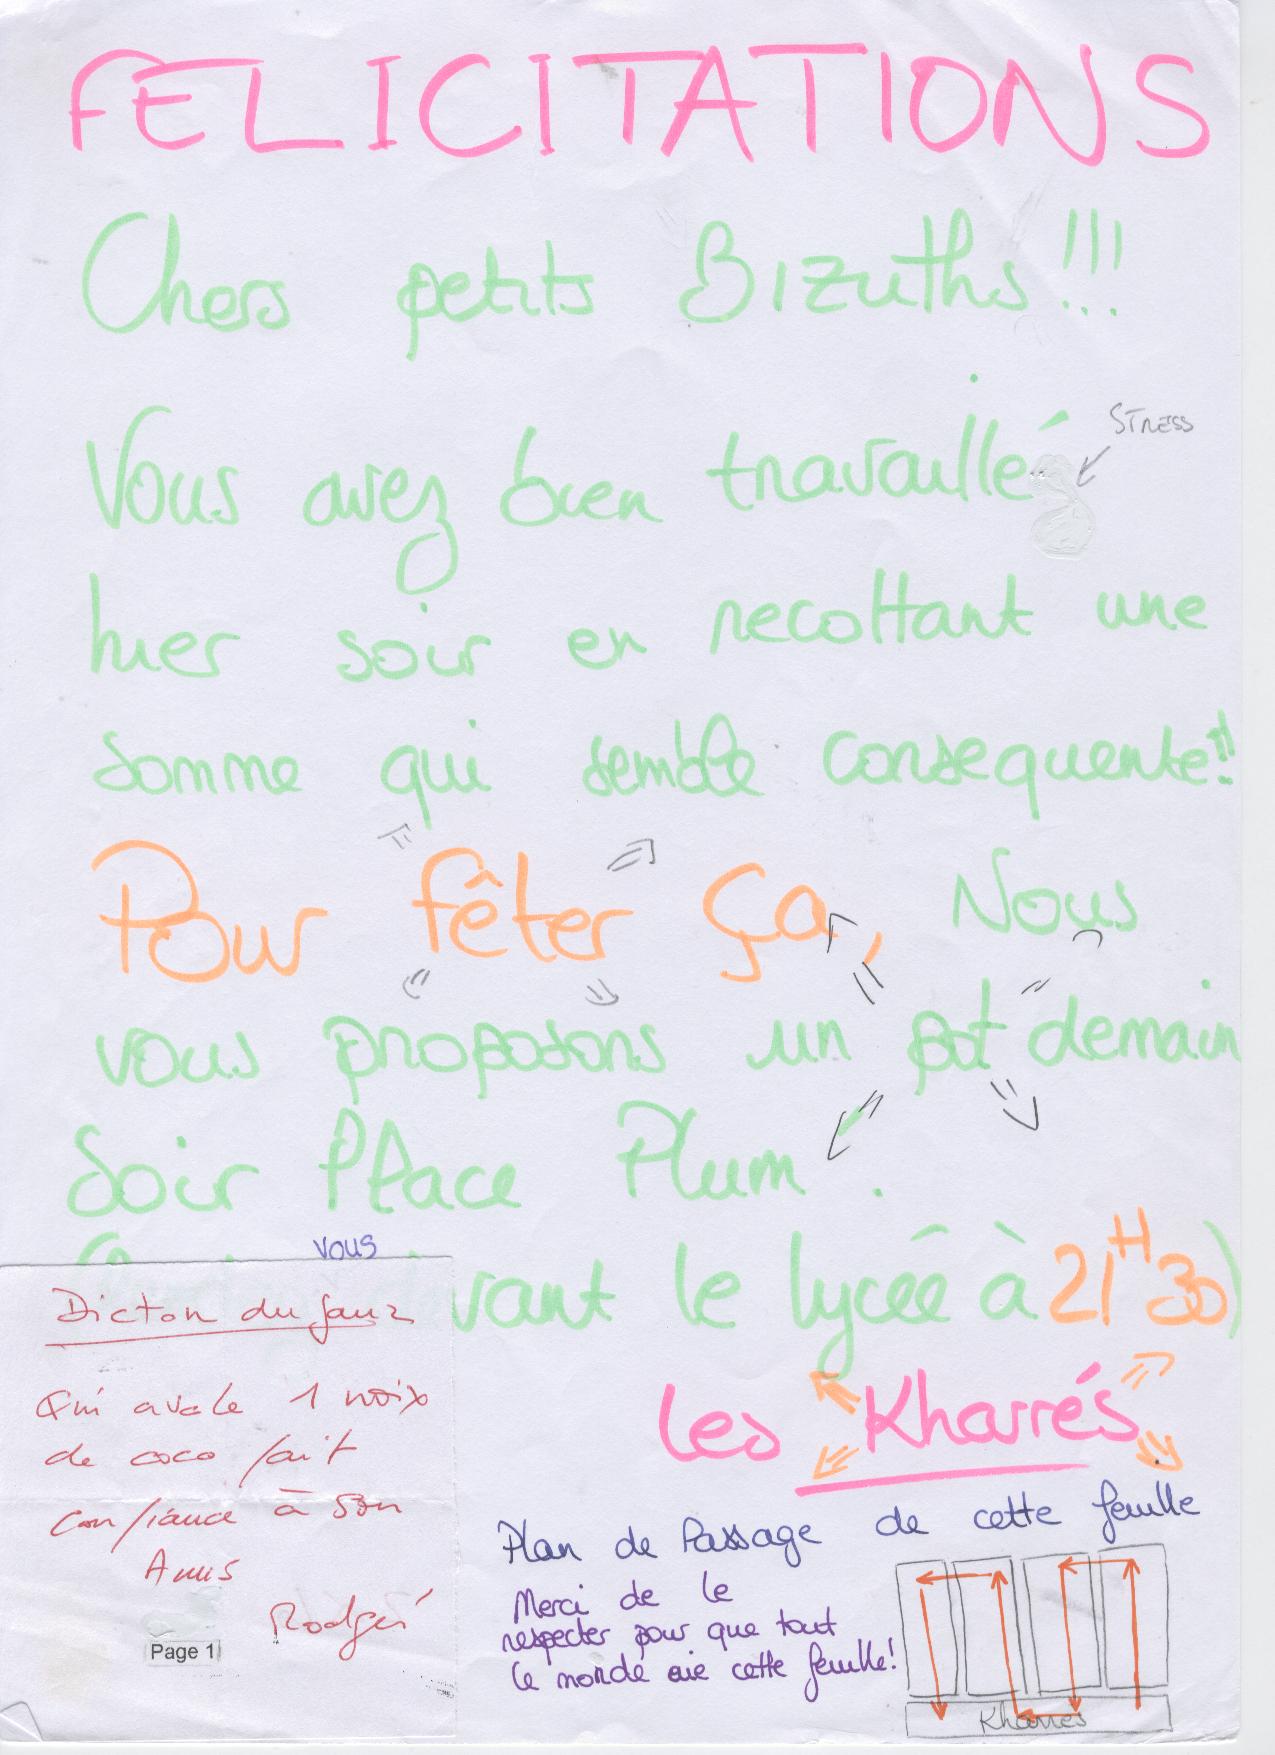 FELICITATIONS
Chers petits Bizuths !!!
Vous avez bien travaillé
STRESS
hier soir en recoltant une
somme qui semble consequente!!
Pour fêter ça, Nous
vous proposons un pot demain
Soir Place Plum.
vous
vant le lycée à 21H30)
les Kharrés
Dicton du jour
Qui avale 1 noix
de coco fait
confiance à son
Anus
Rodgé
Page 1
Plan de Passage de cette feuille
Merci de le
respecter pour que tout
le monde aie cette feuille!
Kharrés